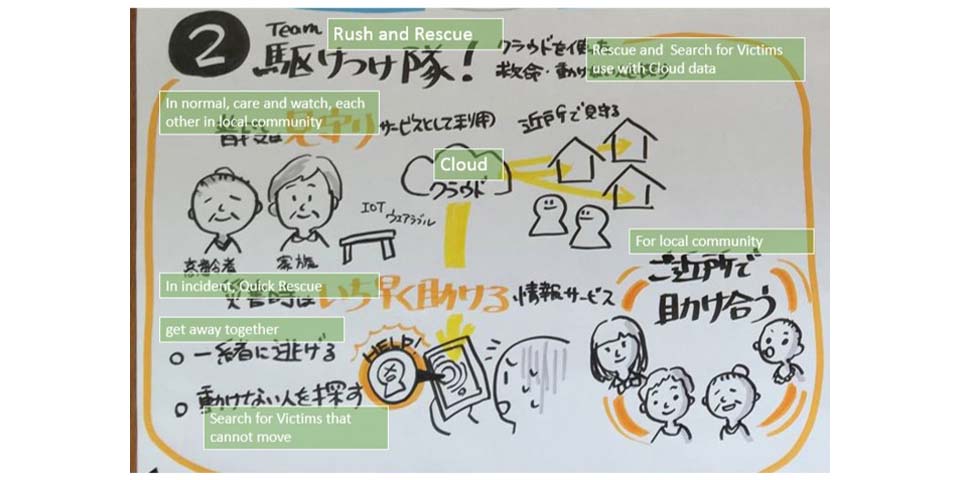 2
Team
Rush and Rescue
駆けつけ隊!
クラウドを使
救命・動け
Rescue and Search for Victims
use with Cloud data
In normal, care and watch, each
other in local community
見守り サービスとして利用)
ご近所で見守る
Cloud
クラウド
IOT
ウェアラブル
高齢者
家族
For local community
ご近所で
助け合う
In incident, Quick Rescue
災害時は いち早く助ける 情報サービス
get away together
○ 一緒に逃げる
HELP!
○ 動けない人を探す
Search for Victims that
cannot move